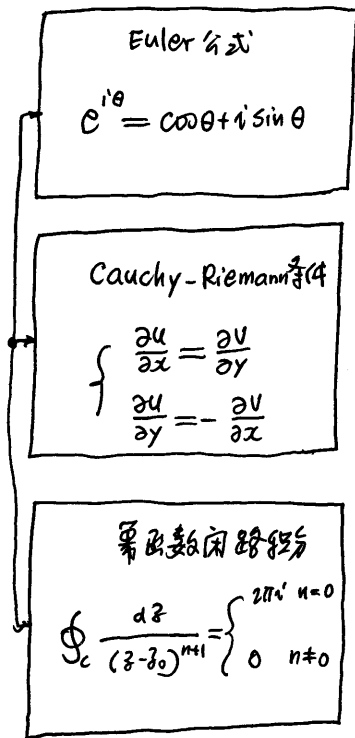 Euler 公式
e^{iθ} = cosθ + i sinθ
Cauchy-Riemann条件
{ ∂u/∂x = ∂v/∂y
∂u/∂y = - ∂v/∂x
幂函数闭路积分
∮_c dz/(z-z₀)^{n+1} = { 2πi n=0
0 n≠0